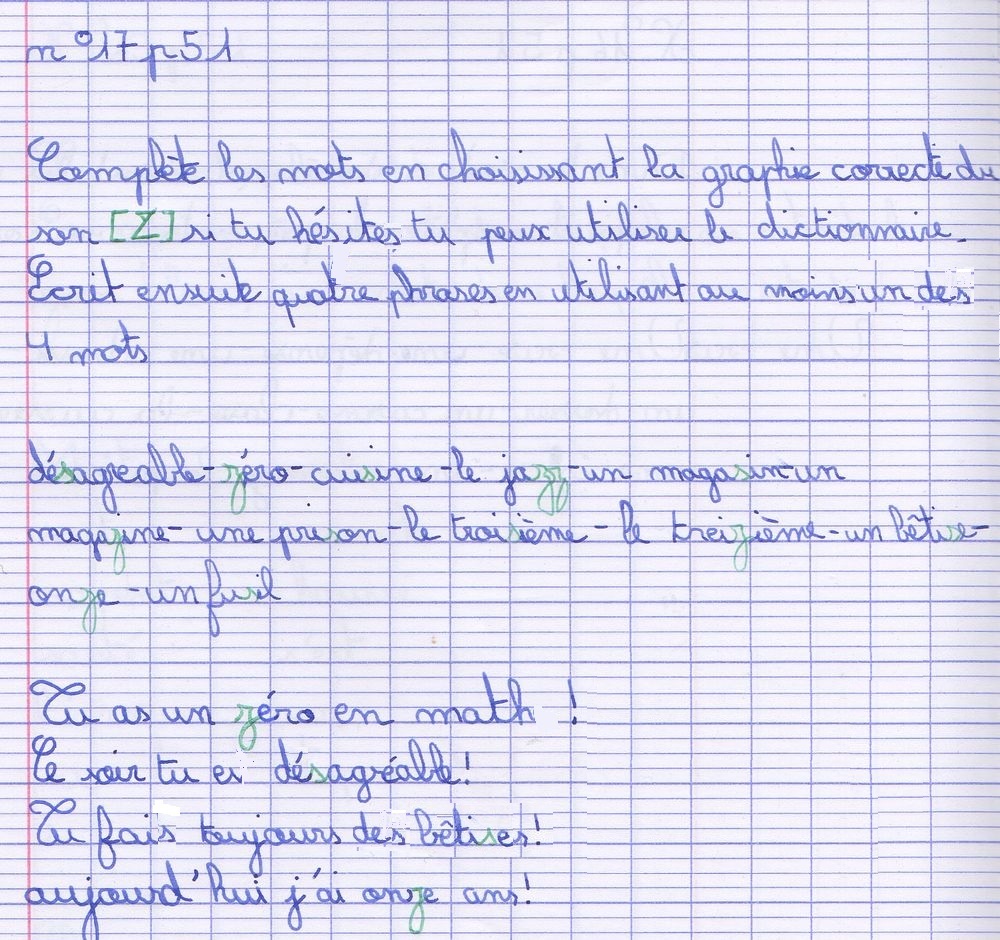 n°17 p51
Complète les mots en choisissant la graphie correcte du
son [Z] si tu hésites tu peux utiliser le dictionnaire.
Ecrit ensuite quatre phrases en utilisant au moins un des
4 mots
désagreable-zéro-cuisine-le jazz-un magasin-un
magazine-une prison-le troisième-le treizième-un bêtise-
onze-un fusil
Tu as un zéro en math !
Ce soir tu es désagréable!
Tu fais toujours des bêtises!
aujourd'hui j'ai onze ans!